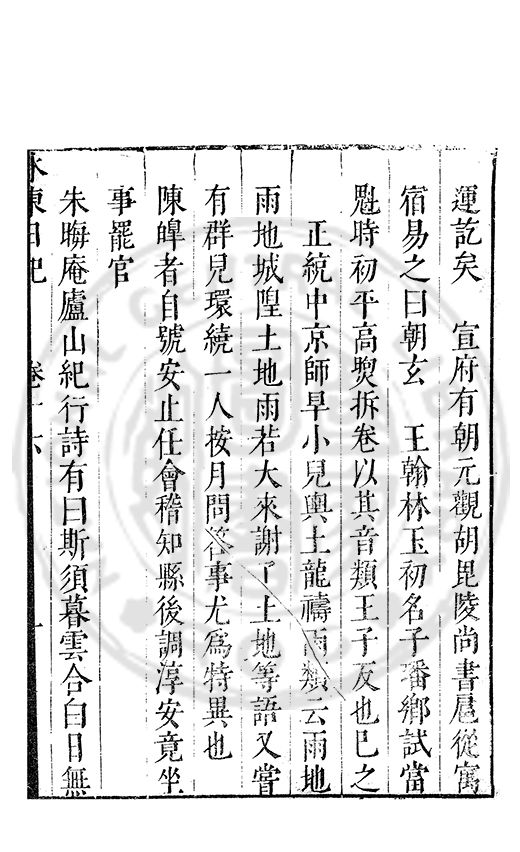 運訖矣　宣府有朝元觀胡毘陵尚書扈從寓
宿易之曰朝玄　王翰林玉初名子璠鄉試當
魁時初平高煚拆卷以其音類王子反也已之
正統中京師旱小兒輿土龍禱雨類云雨地
雨地城隍土地雨若大來謝了土地等語又嘗
有群兒環繞一人按月問答事尤為特異也
陳皡者自號安止任會稽知縣後調淳安竟坐
事罷官
朱晦庵廬山紀行詩有曰斯須暮雲合白日無
水東日記　卷十六　一